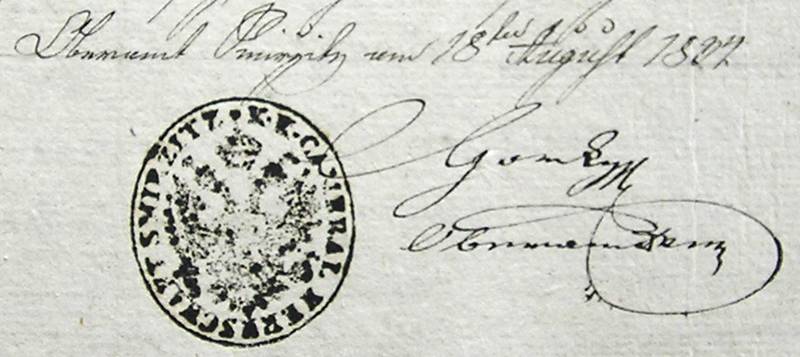 Oberamt Smirzitz am 18ten August 1827
K·K·CAMERAL HERRSCHAFT SMIRZITZ·
Oberamtmann